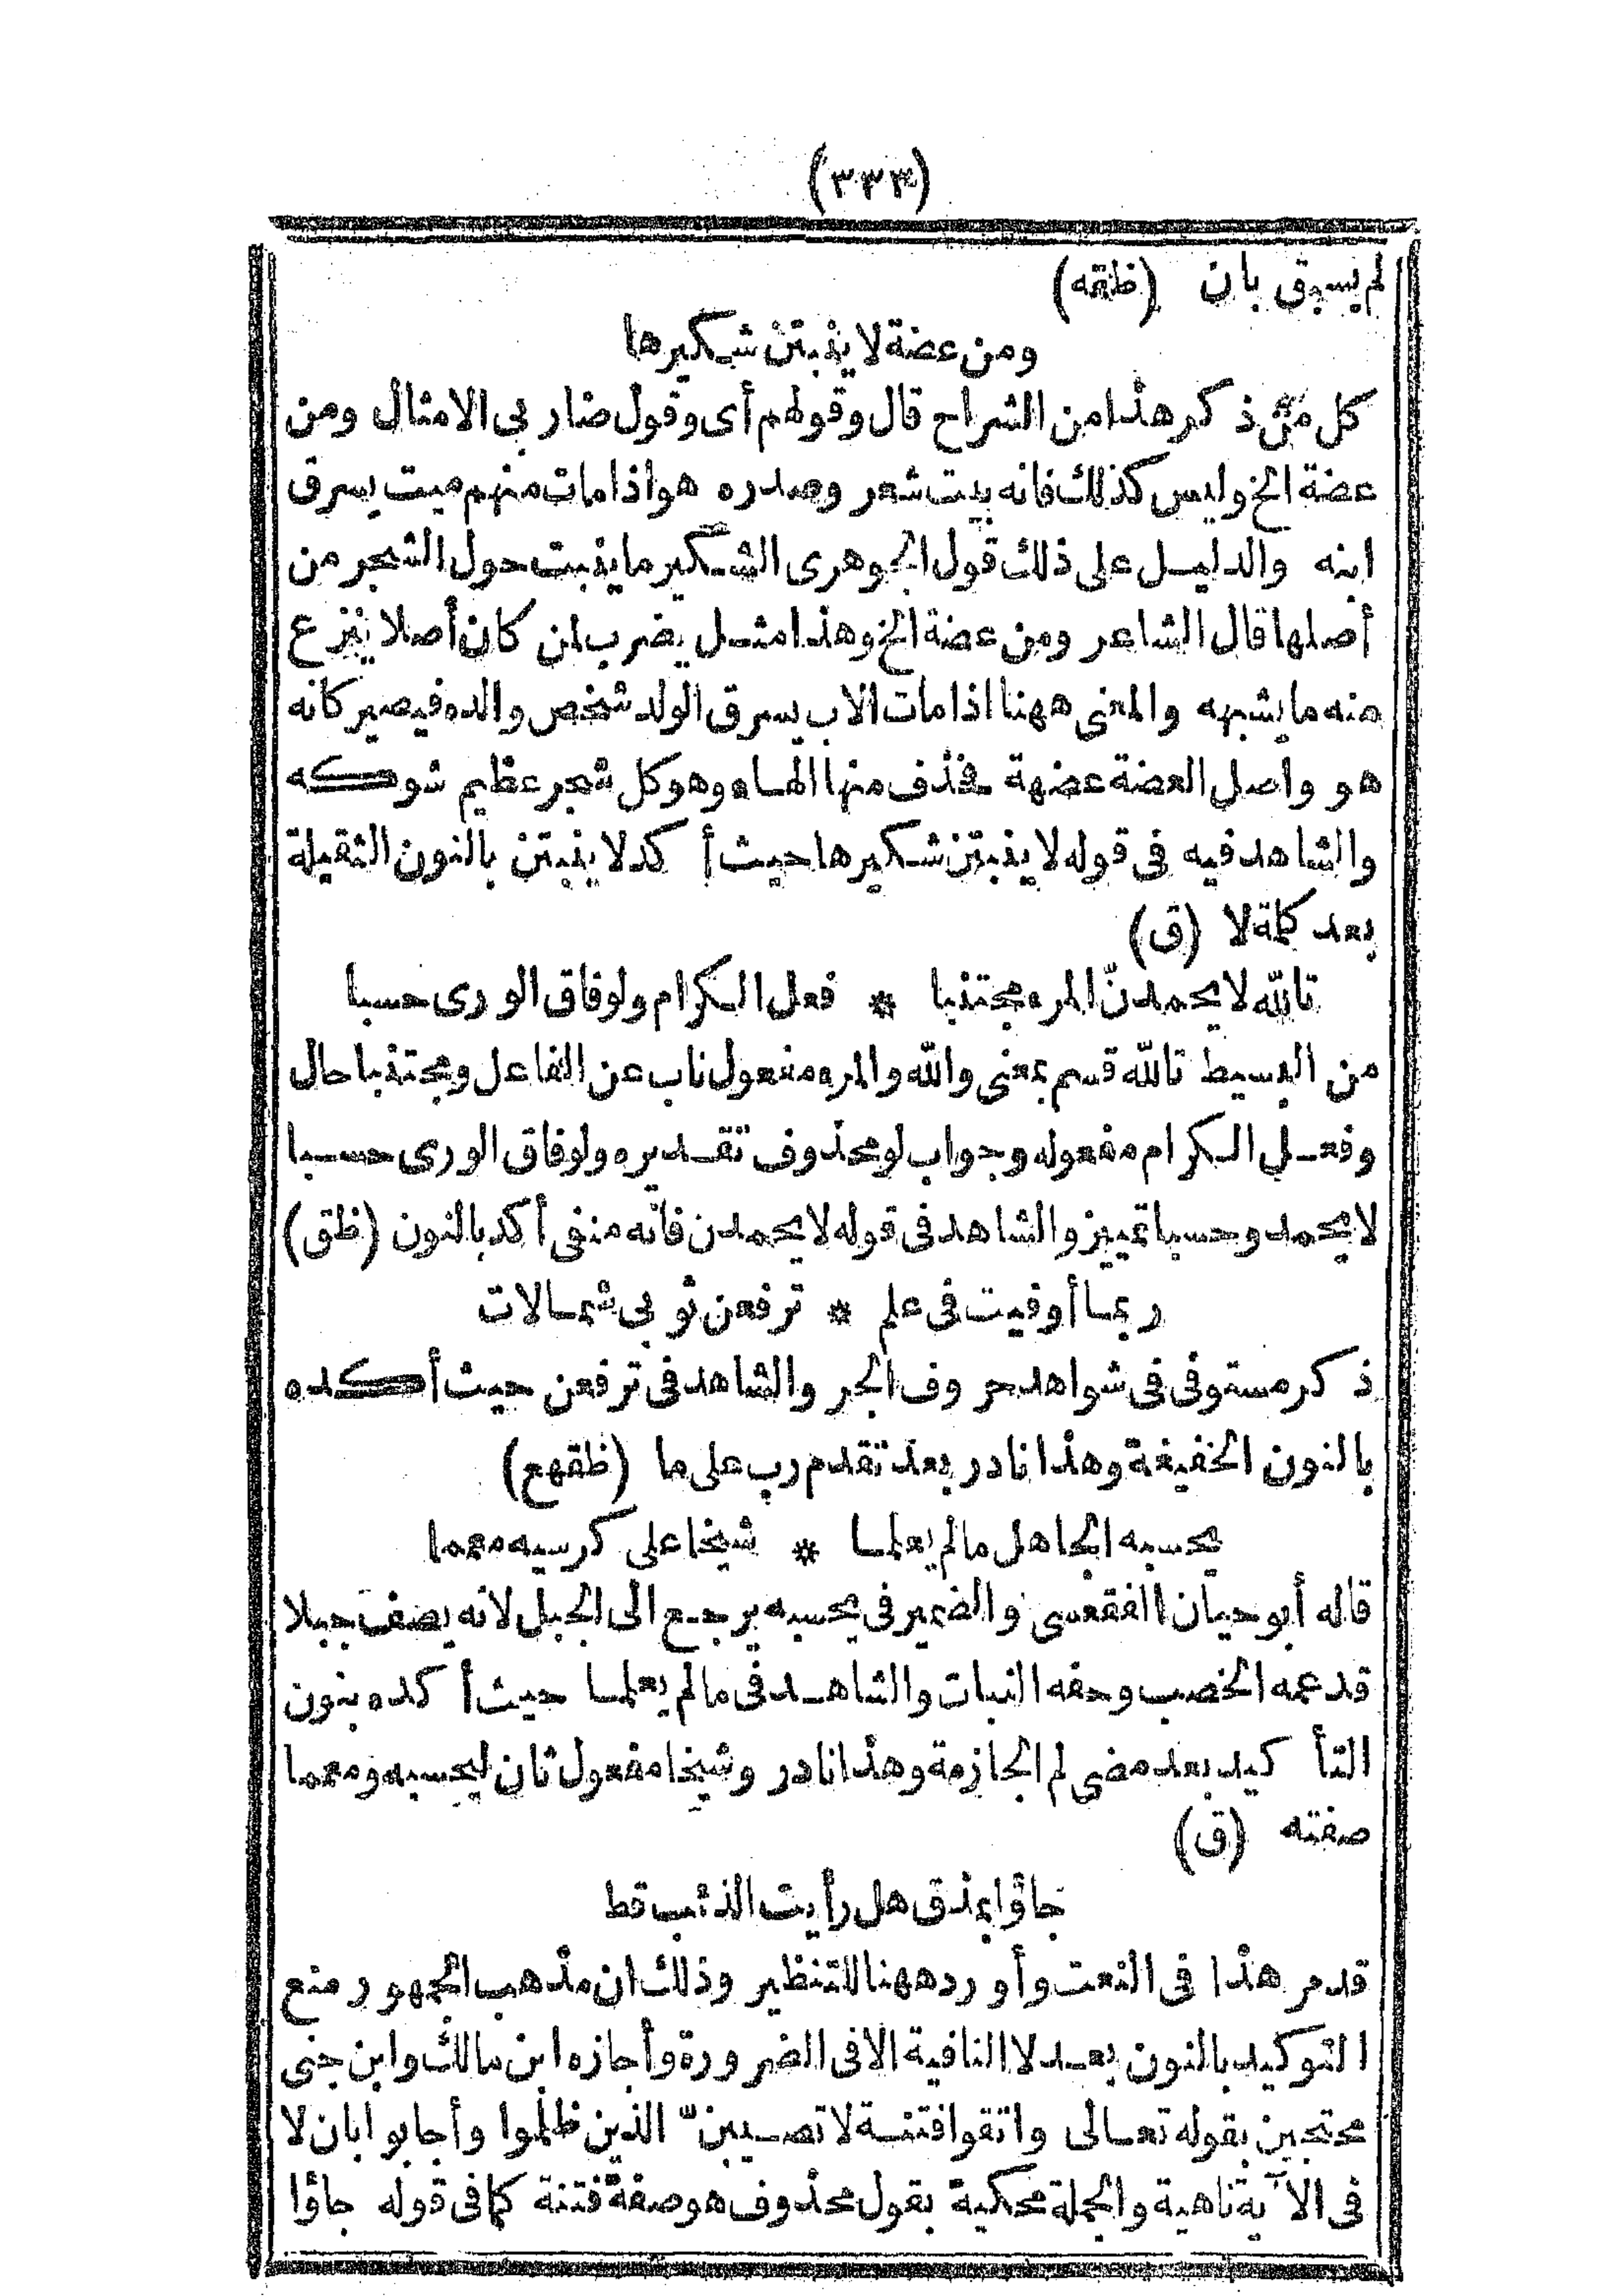 (٣٣٣)
لم يسبق بان (ظقه)
ومن عضة لا ينبتن شكيرها
كل من ذكر هذا من الشراح قال وقولهم أى وقول ضاربى الامثال ومن
عضة الخ وليس كذلك فانه بيت شعر وصدره هو اذا مات منهم ميت يسرق
ابنه والدليل على ذلك قول الجوهرى الشكير ما ينبت حول الشجر من
أصلها قال الشاعر ومن عضة الخ وهذا مثل يضرب لمن كان أصلا ينزع
منه ما يشبهه والمعنى ههنا اذا مات الاب يسرق الولد شخص والده فيصير كانه
هو واصل العضة عضهة فحذف منها الهاء وهو كل شجر عظيم شوكه
والشاهد فيه فى قوله لا ينبتن شكيرها حيث أكد لا ينبتن بالنون الثقيلة
بعد كلمة لا (ق)
تالله لا يحمدنّ المرء مجتنبا * فعل الكرام ولو فاق الورى حسبا
من البسيط تالله قسم بمعنى والله والمرء مفعول ناب عن الفاعل ومجتنبا حال
وفعل الكرام مفعوله وجواب لو محذوف تقديره ولو فاق الورى حسبا
لا يحمد وحسبا تمييز والشاهد فى قوله لا يحمدن فانه منفى أكد بالنون (ظق)
ربما أوفيت فى علم * ترفعن ثوبى شمالات
ذكر مستوفى فى شواهد حروف الجر والشاهد فى ترفعن حيث أكده
بالنون الخفيفة وهذا نادر بعد تقدم رب على ما (ظقهع)
يحسبه الجاهل ما لم يعلما * شيخا على كرسيه معمما
قاله أبو حيان الفقعسى والضمير فى يحسبه يرجع الى الجبل لانه يصف جبلا
قد عمه الخصب وحفه النبات والشاهد فى ما لم يعلما حيث أكده بنون
التأكيد بعد مضى لم الجازمة وهذا نادر وشيخا مفعول ثان ليحسبه ومعمما
صفته (ق)
جاؤا بمذق هل رأيت الذئب قط
قد مر هذا فى النعت وأورده ههنا للتنظير وذلك ان مذهب الجمهور منع
التوكيد بالنون بعد لا النافية الا فى الضرورة وأجازه ابن مالك وابن جنى
محتجين بقوله تعالى واتقوا فتنة لا تصيبنّ الذين ظلموا وأجابوا بان لا
فى الآية ناهية والجملة محكية بقول محذوف هو صفة فتنة كما فى قوله جاؤا